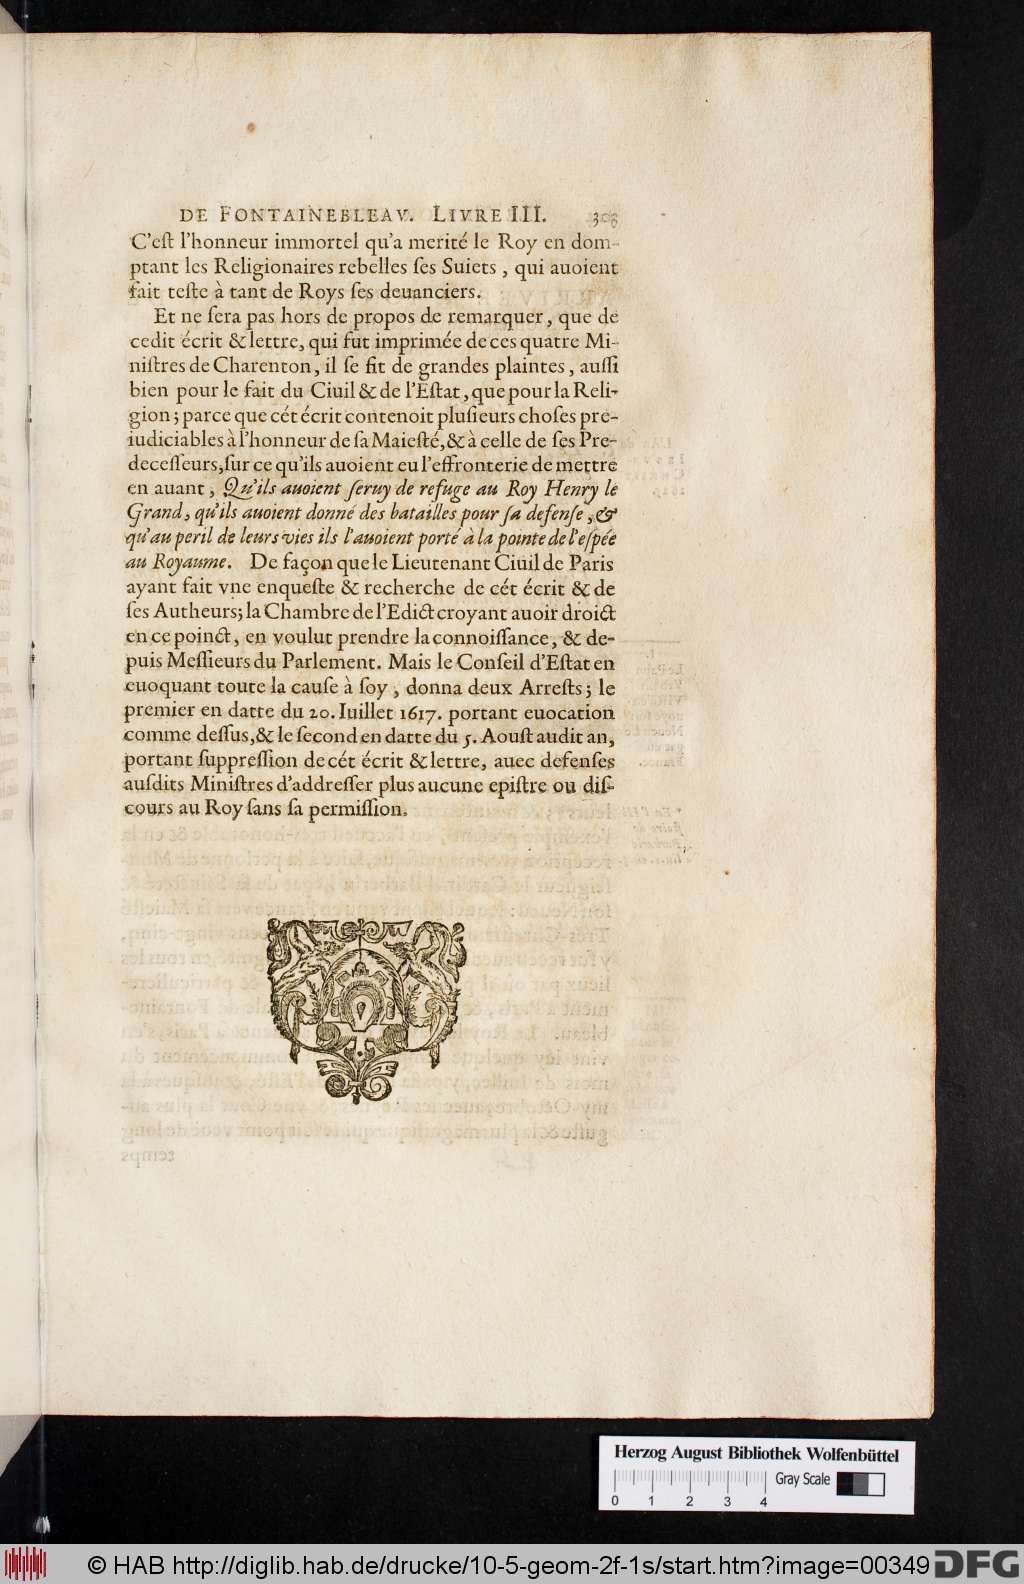 DE FONTAINEBLEAV. LIVRE III. 303
C'eſt l'honneur immortel qu'a merité le Roy en dom-
ptant les Religionaires rebelles ſes Suiets, qui auoient
fait teſte à tant de Roys ſes deuanciers.
Et ne ſera pas hors de propos de remarquer, que de
cedit écrit & lettre, qui fut imprimée de ces quatre Mi-
niſtres de Charenton, il ſe fit de grandes plaintes, auſſi
bien pour le fait du Ciuil & de l'Eſtat, que pour la Reli-
gion; parce que cét écrit contenoit pluſieurs choſes pre-
iudiciables à l'honneur de ſa Maieſté, & à celle de ſes Pre-
deceſſeurs, ſur ce qu'ils auoient eu l'effronterie de mettre
en auant, Qu'ils auoient ſeruy de refuge au Roy Henry le
Grand, qu'ils auoient donné des batailles pour ſa defenſe, &
qu'au peril de leurs vies ils l'auoient porté à la pointe de l'eſpée
au Royaume. De façon que le Lieutenant Ciuil de Paris
ayant fait vne enqueſte & recherche de cét écrit & de
ſes Autheurs; la Chambre de l'Edict croyant auoir droict
en ce poinct, en voulut prendre la connoiſſance, & de-
puis Meſſieurs du Parlement. Mais le Conſeil d'Eſtat en
euoquant toute la cauſe à ſoy, donna deux Arreſts; le
premier en datte du 20. Iuillet 1617. portant euocation
comme deſſus, & le ſecond en datte du 5. Aouſt audit an,
portant ſuppreſſion de cét écrit & lettre, auec defenſes
auſdits Miniſtres d'addreſſer plus aucune epiſtre ou diſ-
cours au Roy ſans ſa permiſſion.
Herzog August Bibliothek Wolfenbüttel
Gray Scale
0 1 2 3 4
© HAB http://diglib.hab.de/drucke/10-5-geom-2f-1s/start.htm?image=00349
DFG